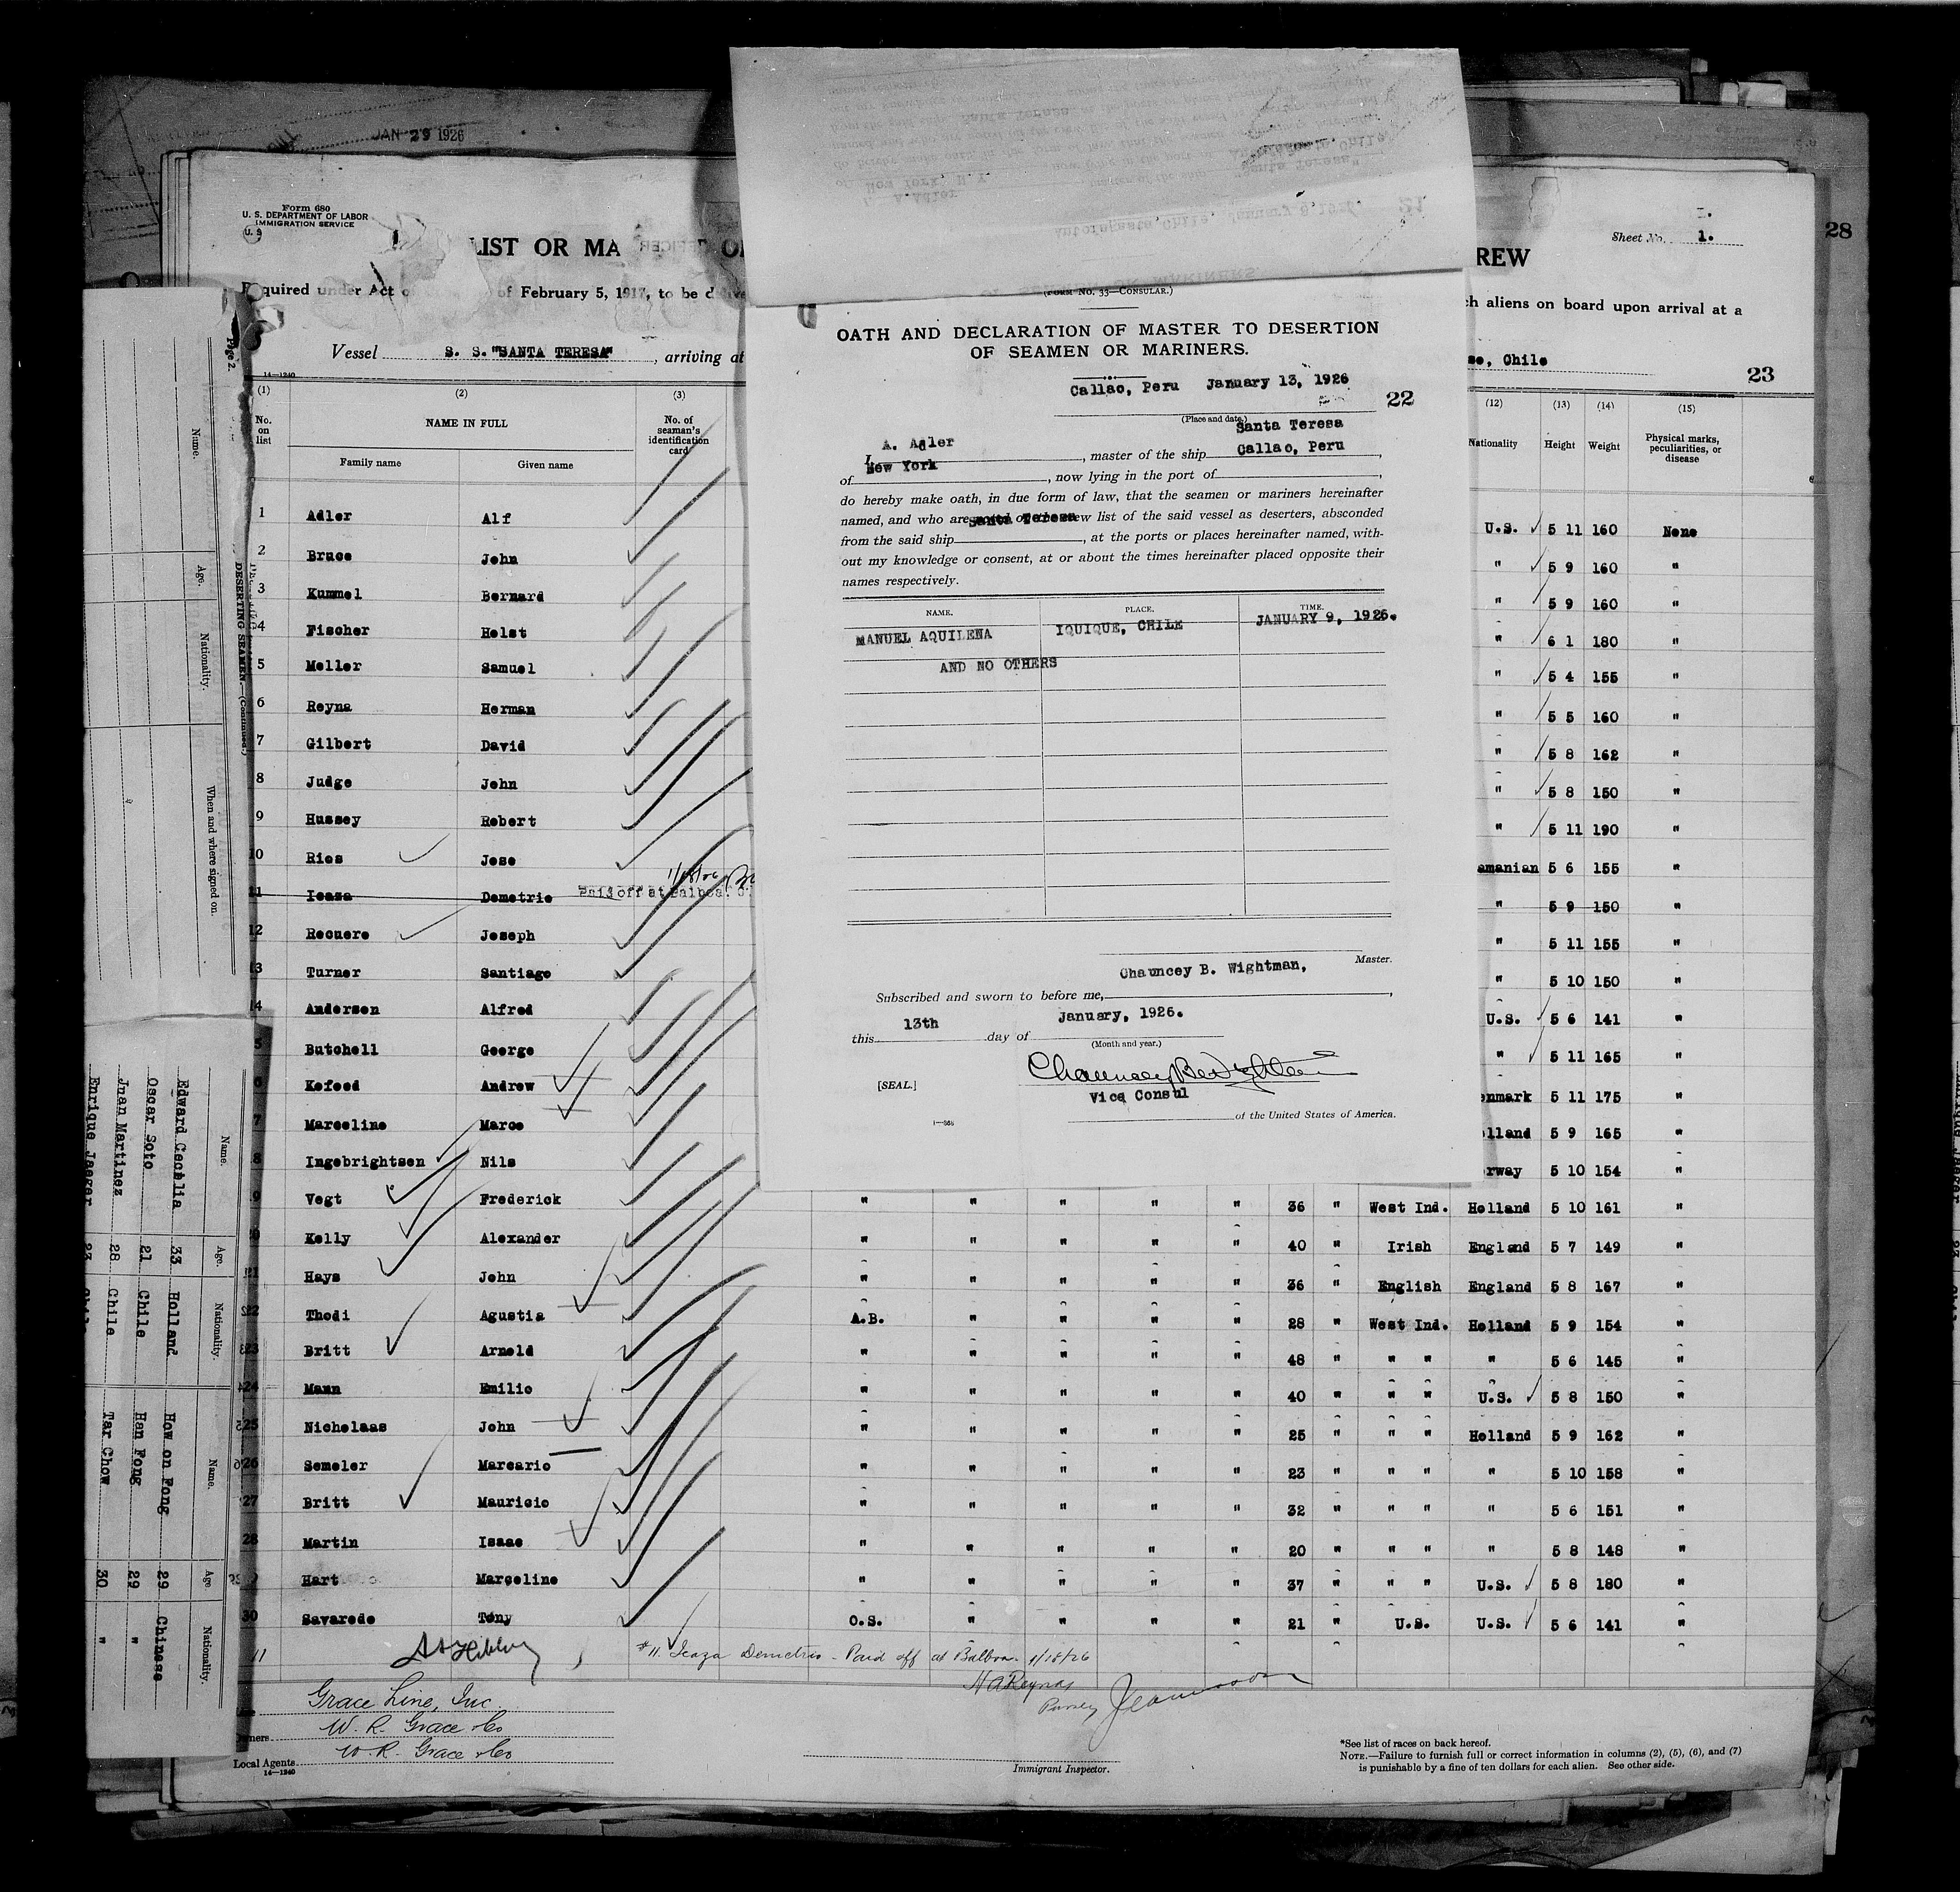 JAN 29 1926
Form 680
U. S. DEPARTMENT OF LABOR
IMMIGRATION SERVICE
LIST OR MA
REW
Sheet No. 1.
28
Required under Act of February 5, 1917, to be
ch aliens on board upon arrival at a
Vessel S. S. "SANTA TERESA", arriving at
Chile
23
14—1240
(1) (2) (3)
No. on list
NAME IN FULL
Family name Given name
No. of seaman's identification card
(12) (13) (14) (15)
Nationality Height Weight Physical marks, peculiarities, or disease
1 Adler Alf U.S. 5 11 160 None
2 Bruce John " 5 9 160 "
3 Kummel Bernard " 5 9 160 "
4 Fischer Holst " 6 1 180 "
5 Meller Samuel " 5 4 155 "
6 Reyna Herman " 5 5 160 "
7 Gilbert David " 5 8 162 "
8 Judge John " 5 8 150 "
9 Hussey Robert " 5 11 190 "
10 Rios Jose 5 6 155 "
11 Icaza Demetrio Paid off at Balboa. 1/18/26 " 5 9 150 "
12 Recuero Joseph " 5 11 155 "
13 Turner Santiago " 5 10 150 "
14 Andersen Alfred U.S. 5 6 141 "
5 Butchell George " 5 11 165 "
6 Kofoed Andrew enmark 5 11 175 "
7 Marceline Marco lland 5 9 165 "
8 Ingebrightsen Nils rway 5 10 154 "
9 Vegt Frederick " " " " " 36 " West Ind. Holland 5 10 161 "
0 Kelly Alexander " " " " " 40 " Irish England 5 7 149 "
21 Hays John " " " " " 36 " English England 5 8 167 "
22 Thodi Agustia A.B. " " " " 28 " West Ind. Holland 5 9 154 "
23 Britt Arnold " " " " " 48 " " " " 5 6 145 "
24 Mann Emilio " " " " " 40 " " " U.S. 5 8 150 "
25 Nicholaas John " " " " " 25 " " " Holland 5 9 162 "
26 Semeler Marcario " " " " " 23 " " " " 5 10 158 "
27 Britt Mauricio " " " " " 32 " " " " 5 6 151 "
28 Martin Isaac " " " " " 20 " " " " 5 8 148 "
Hart Marceline " " " " " 37 " " " U.S. 5 8 180 "
30 Savarede Tony O.S. " " " " 21 " U.S. U.S. 5 6 141 "
#11. Icaza Demetrio - Paid off at Balboa - 1/18/26
Grace Line, Inc.
Owners W. R. Grace & Co
Local Agents W. R. Grace & Co
14—1240
Immigrant Inspector.
*See list of races on back hereof.
NOTE.—Failure to furnish full or correct information in columns (2), (5), (6), and (7)
is punishable by a fine of ten dollars for each alien. See other side.
(FORM NO. 33—CONSULAR.)
OATH AND DECLARATION OF MASTER TO DESERTION
OF SEAMEN OR MARINERS.
Callao, Peru January 13, 1926
(Place and date.)
22
I, A. Adler, master of the ship Santa Teresa
of New York, now lying in the port of Callao, Peru,
do hereby make oath, in due form of law, that the seamen or mariners hereinafter
named, and who are noted on the crew list of the said vessel as deserters, absconded
from the said ship Santa Teresa, at the ports or places hereinafter named, with-
out my knowledge or consent, at or about the times hereinafter placed opposite their
names respectively.
NAME. PLACE. TIME.
MANUEL AQUILENA IQUIQUE, CHILE JANUARY 9, 1926.
AND NO OTHERS
Master.
Subscribed and sworn to before me, Chauncey B. Wightman,
this 13th day of January, 1926.
(Month and year.)
[SEAL.]
Vice Consul
of the United States of America.
Page 2.
DESERTING SEAMEN.—(Continued.)
Name. Age. Nationality. When and where signed on.
Name. Age. Nationality. Name. Age. Nationality.
Edward Cecelia 33 Holland How on Fong 29 Chinese
Oscar Soto 21 Chile Han Fong 29 "
Juan Martinez 28 Chile Tar Chow 30 "
Enrique Jaeger 23